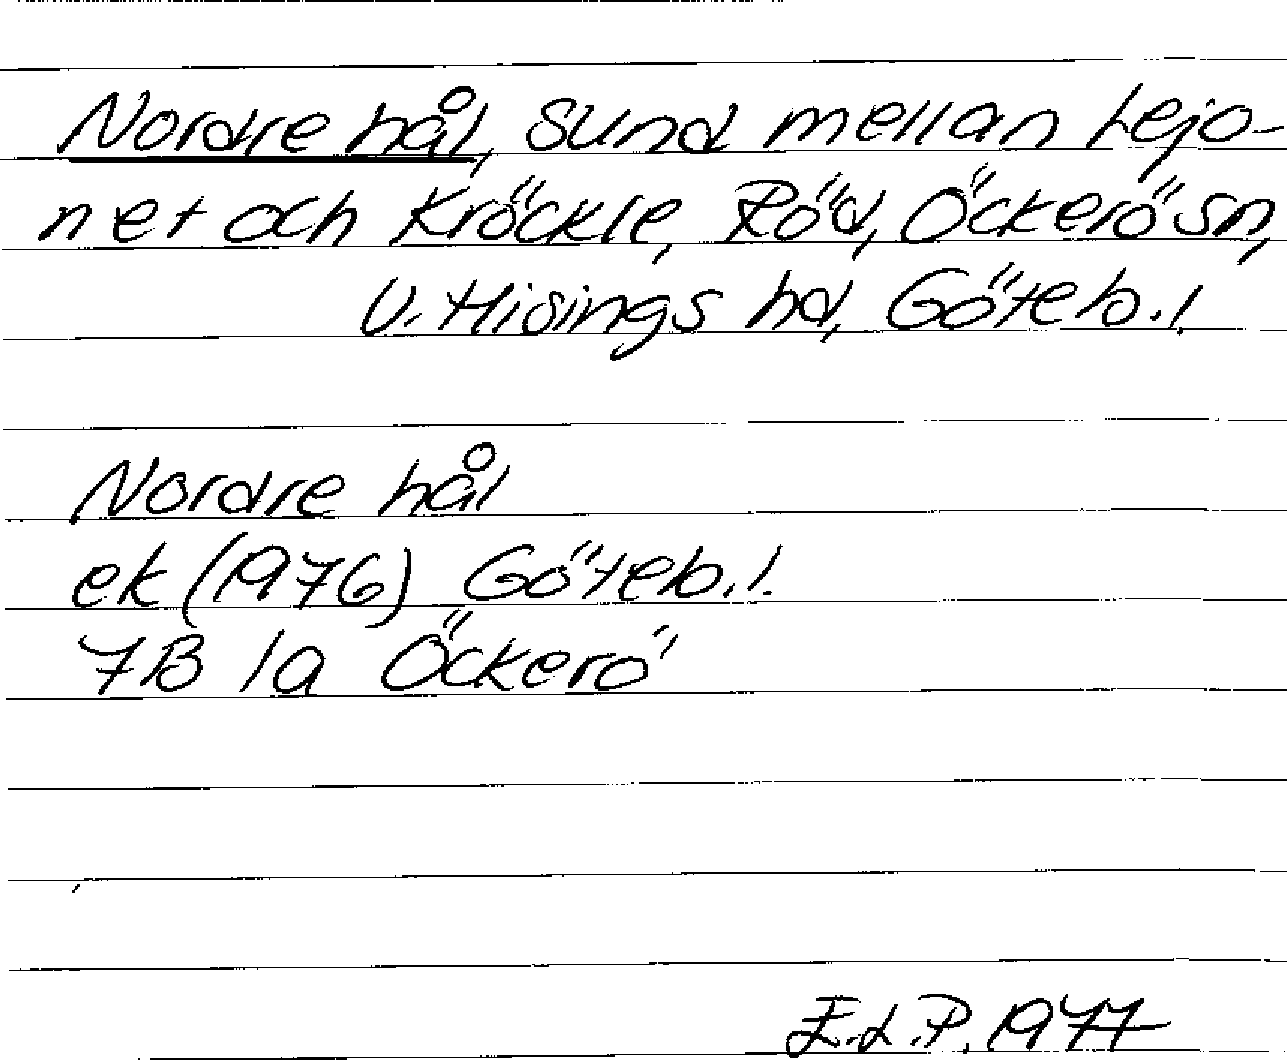 Nordre hål, sund mellan Lejo-
net och Kröckle, Röd, Öckerö sn,
V. Hisings hd, Göteb.l.
Nordre hål
ek (1976) Göteb.l.
7B 1a Öckerö
E.L.P. 1977